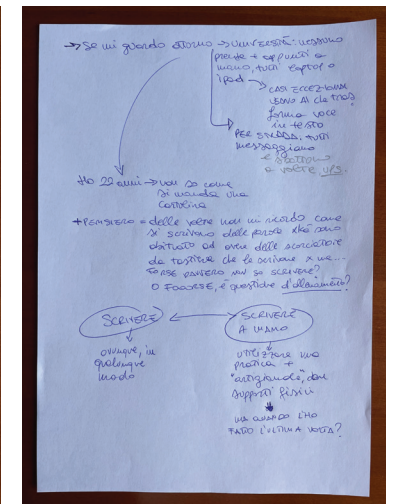 → Se mi guardo attorno → UNIVERSITÀ: nessuno
prende + appunti a
mano, tutti laptop o
ipad → CASI ECCEZIONALI
USANO AI che tras
forma voce
in testo
PER STRADA: tutti
messaggiano
e scattano
a volte, UPS.
Ho 22 anni → non so come
si manda una
cartolina
+ PENSIERO = delle volte non mi ricordo come
si scrivono delle parole xké sono
abituato ad avere delle scorciatoie
da tastiera che le scrivono x me...
FORSE davvero non so scrivere?
O FOORSE, è questione d'allenamento?
SCRIVERE ↔ SCRIVERE
A MANO
ovunque, in
qualunque
modo
UTILIZZARE una
pratica +
"artigianale", con
supporti fisici
MA QUANDO L'HO
FATTO L'ULTIMA VOLTA?